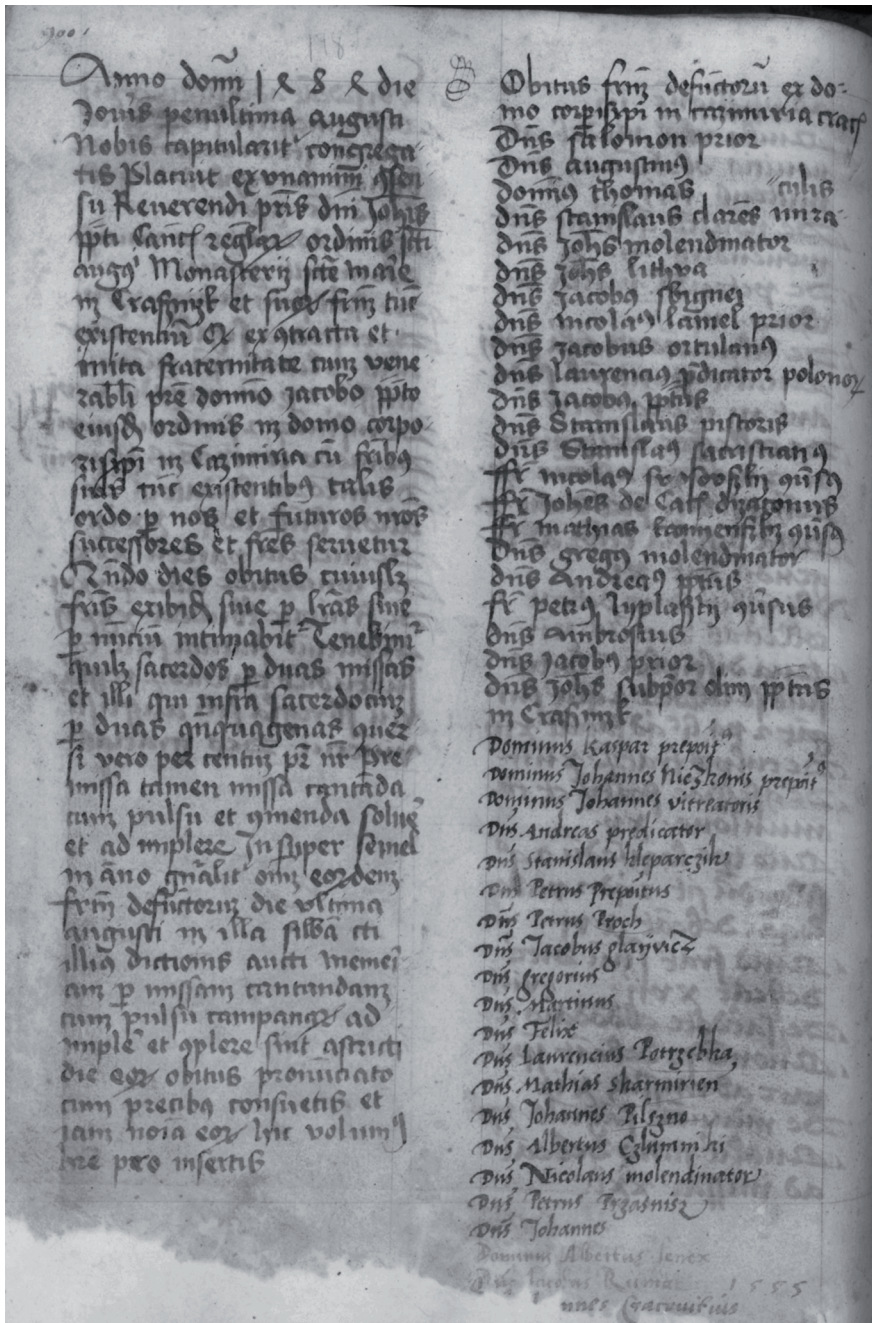 Anno domī 1484 die
Jovis penultima augusti
Nobis capitularit congrega
tis Placuit ex vnanimi ꝯsen
su Reverendi pr̄is dni Joh̄is
ppti Canc̄ reglar ordinis sc̄ti
augg Monasterij sc̄te marie
in Crasnyk et suor fr̄m tūc
existentiū Q ex ꝯtracta et
inita fraternitate cum vene
rabli pre domino jacobo ppto
eiusdē ordinis in domo corpo
ris xp̄i in Cazimiria cū frībꝯ
suis tūc existentibꝯ talis
ordo p nos et futuros nr̄os
successores et fr̄es servetur
Qn̄do dies obitus cuiuslꝫ
fr̄is exibid sive p lr̄as sive
p nūciū intimabit Tenebim
quilꝫ sacerdos p duas missas
et illi qui infra sacerdociū
p duas qūquagenas quer
si vero per centū pr nr pre
missa tamen missa cantāda
cum pulsu et ꝯmenda solne
et ad implere Insuper semel
in āno gn̄alit oīm eordem
fr̄m defūctorum die vltima
augusti in illa
illiꝯ dictionis aucti memei
am p missam cantandam
cum pulsu campanar ad
imple et ꝯplere sint astricti
die eor obitus pronūciato
cum precibꝯ consuetis et
jam noīa eor hic volumꝯ
hr̄e pro insertis
Obitus fr̄m defūctorū ex do-
mo corpis xp̄i in cazimiria crac
Dn̄s salomon prior
Dn̄s augustinꝯ
dominꝯ thomas culis
dn̄s stanislaus clarēs mira-
dn̄s Joh̄s molendinator
dn̄s Joh̄s lithva
dn̄s Jacobꝯ sbignei
dn̄s nicolaꝯ lamel prior
dn̄s jacobus ortulanꝯ
dn̄s laurencius pdicator polonor
dn̄s Jacobꝯ pptus
dn̄s Stanislaus pistoris
dn̄s Stanislaꝯ sacristianꝯ
ffr nicolaꝯ ꝯūsꝯ
ffr Joh̄es de
ffr mathias ꝯūsꝯ
Dn̄s gregꝯ molendinator
dn̄s Andreaꝯ pptus
fr petrꝯ ꝯūsus
dn̄s Ambrosius
dn̄s jacobꝯ prior
dn̄s Joh̄s subpor olim pptus
in Crasnik
Dominus Kaspar preposit
Dominus Johannes Niczkonis preposit
Dominus Johannes vitreatoris
Dn̄s Andreas predicator
Dn̄s Stanislaus kleparczik
Dn̄s Petrus Prepositus
Dn̄s Petrus Proch
Dn̄s Jacobus glayvicz
Dn̄s gregorius
Dn̄s Martinus
Dn̄s Felix
Dn̄s Laurencius Potrzebka
Dn̄s Mathias skarmirien
Dn̄s Johannes Pilczno
Dn̄s Albertus
Dn̄s Nicolaus molendinator
Dn̄s Petrus Przasnisz
Dn̄s Johannes
Dominus Albertus senex
1555
Cracovitius